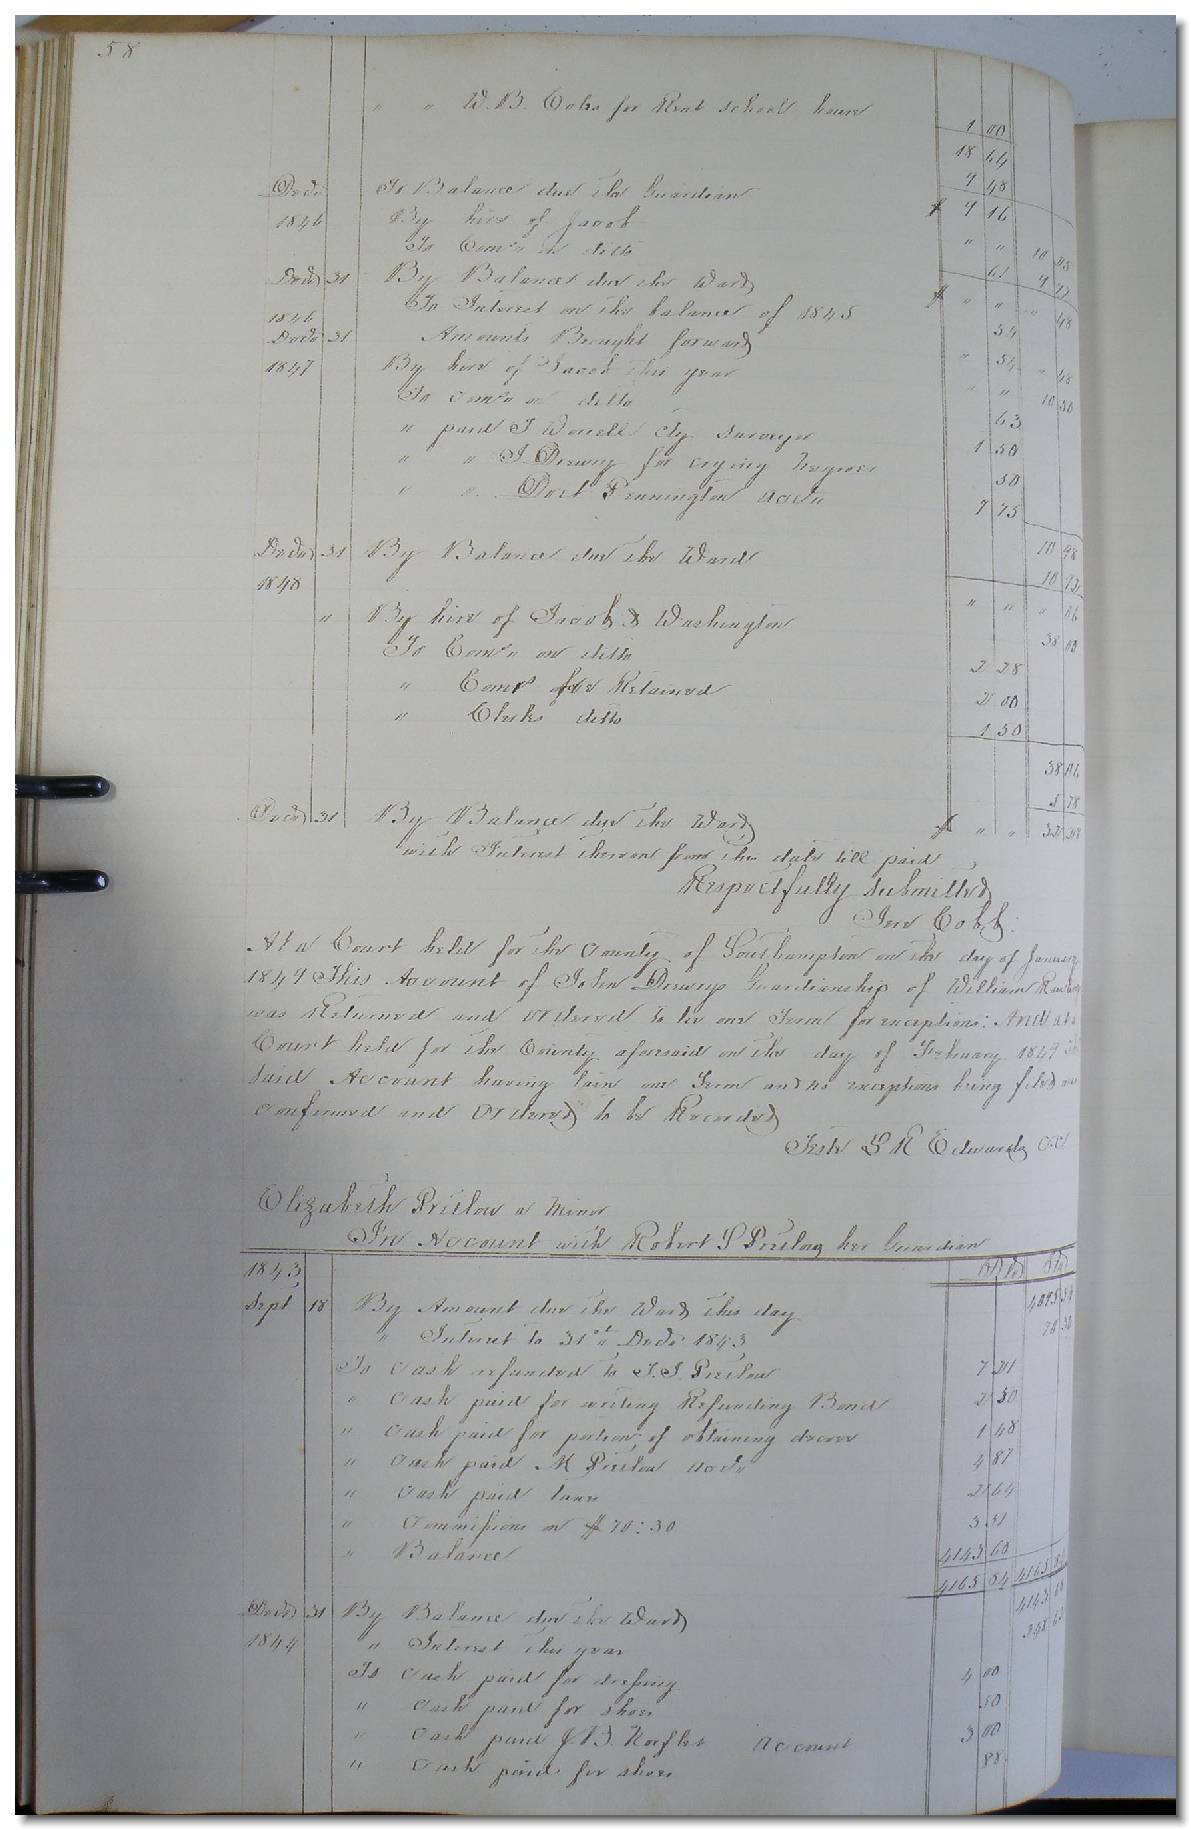 58
" " W. B. Coles for Rent school house 1 00
18 64
9 48
Decr To Balance due the Guardian $ 9 16
1846 By hire of Jacob " " 10 05
To Comn on ditto 61
Decr 31 By Balance due the Ward $ " " " 48
To Interest on the balance of 1845 54
1846
Decr 31 Amounts Brought forward " 54 " 48
1847 By hire of Jacob this year " " 10 50
To comn on ditto 63
" paid T Dowell Cty. Surveyor 1 50
" " J Drewry for crying Negroes 50
" " Doct Pennington acct 7 75
10 98
Decr 31 By Balance due the Ward " " " 06
1848
" By hire of Jacob & Washington 38 00
To Comn on ditto 2 28
" Comr fee Retained 2 00
" Clerks ditto 1 50
38 06
5 78
Decr 31 By Balance due the Ward $ " " 32 28
with Interest thereon from this date till paid
Respectfully submitted
Jere Cobb:
At a Court held for the County of Southampton on the day of January
1849 This Account of John Drewrys Guardianship of William
was Returned and ordered to lie one Term for exceptions: And at a
Court held for the County aforesaid on the day of February 1849 The
said Account having lain one Term and no exceptions being filed was
confirmed and Ordered to be Recorded
Teste L R Edwards CC
Elizabeth Pretlow a Minor
In Account with Robert S Pretlow her Guardian
1843 Dr Cr
Sept 18 By Amount due the Ward this day 4095 54
" Interest to 31st Decr 1843 70 30
To Cash refunded to T. J. Pretlow 7 21
" Cash paid for writing Refunding Bond 2 50
" Cash paid for portion of obtaining decree 1 48
" Cash paid M Pretlow acct 4 87
" Cash paid taxes 2 64
" Commissions on $70:30 3 51
" Balance 4143 60
4165 84 4165 84
Decr 31 By Balance due the Ward 4143 60
1844 " Interest this year 248 63
To Cash paid for dressing 4 00
" Cash paid for shoes 50
" Cash paid J B. Norflet Account 3 00
" Cash paid for shoes 88